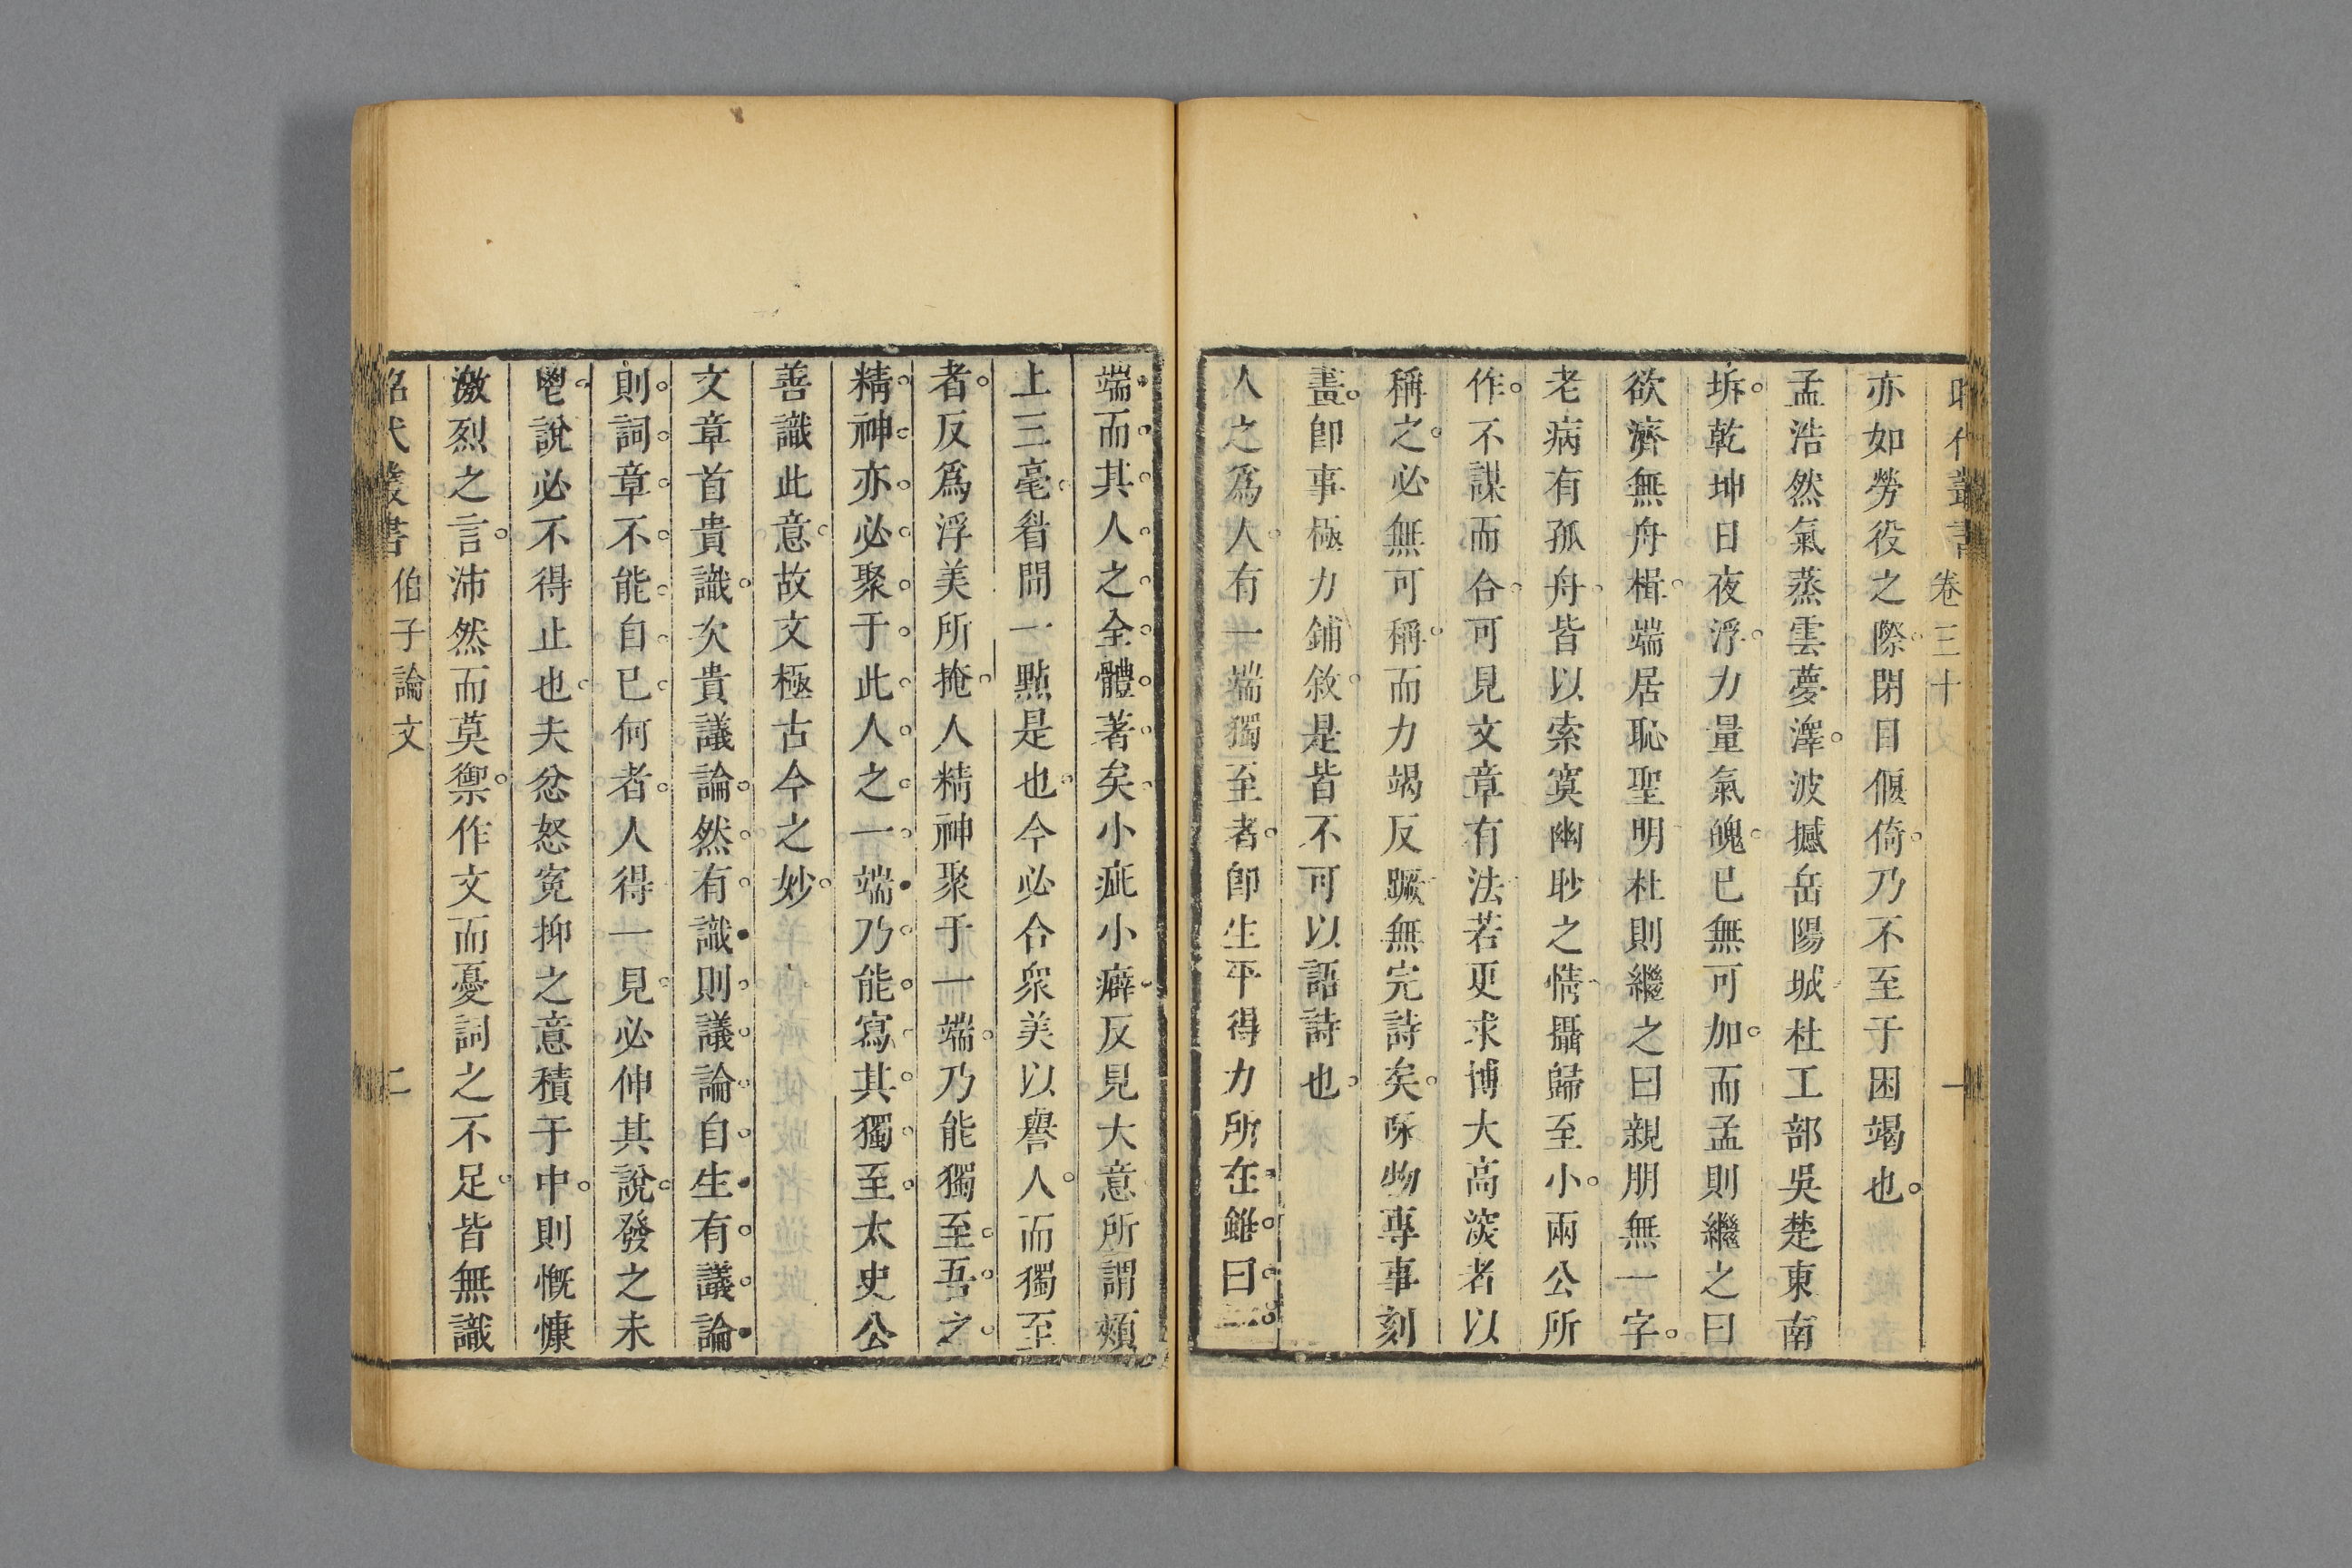 昭代叢書 卷三十 一
亦如勞役之際閉目偃倚乃不至于困竭也
孟浩然氣蒸雲夢澤波撼岳陽城杜工部吳楚東南
坼乾坤日夜浮力量氣魄已無可加而孟則繼之曰
欲濟無舟楫端居恥聖明杜則繼之曰親朋無一字
老病有孤舟皆以索寞幽眇之情攝歸至小兩公所
作不謀而合可見文章有法若更求博大高深者以
稱之必無可稱而力竭反蹶無完詩矣咏物專事刻
畫卽事極力鋪敘是皆不可以語詩也
人之爲人有一端獨至者卽生平得力所在雖曰一
端而其人之全體著矣小疵小癖反見大意所謂頰
上三毫眉間一點是也今必合衆美以譽人而獨至
者反爲浮美所掩人精神聚于一端乃能獨至吾之
精神亦必聚于此人之一端乃能寫其獨至太史公
善識此意故文極古今之妙
文章首貴識次貴議論然有識則議論自生有議論
則詞章不能自已何者人得一見必伸其說發之未
鬯說必不得止也夫忿怒寃抑之意積于中則慨慷
激烈之言沛然而莫禦作文而憂詞之不足皆無識
昭代叢書 伯子論文 二